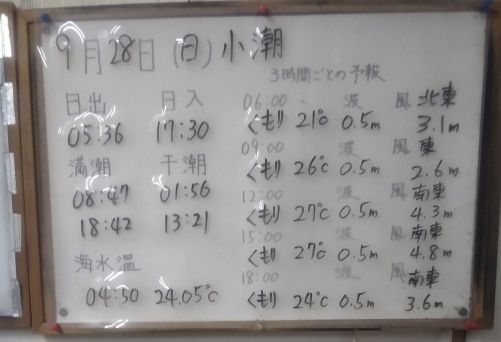 9月28日(日)小潮
3時間ごとの予報
日出 月入
05:36 17:30
満潮 干潮
08:47 01:56
18:42 13:21
海水温
04:50 24.05℃
06:00 波 風 北東
くもり 21℃ 0.5m 3.1m
09:00 波 風 東
くもり 26℃ 0.5m 2.6m
12:00 波 風 南東
くもり 27℃ 0.5m 4.3m
15:00 波 風 南東
くもり 27℃ 0.5m 4.8m
18:00 波 風 南東
くもり 24℃ 0.5m 3.6m